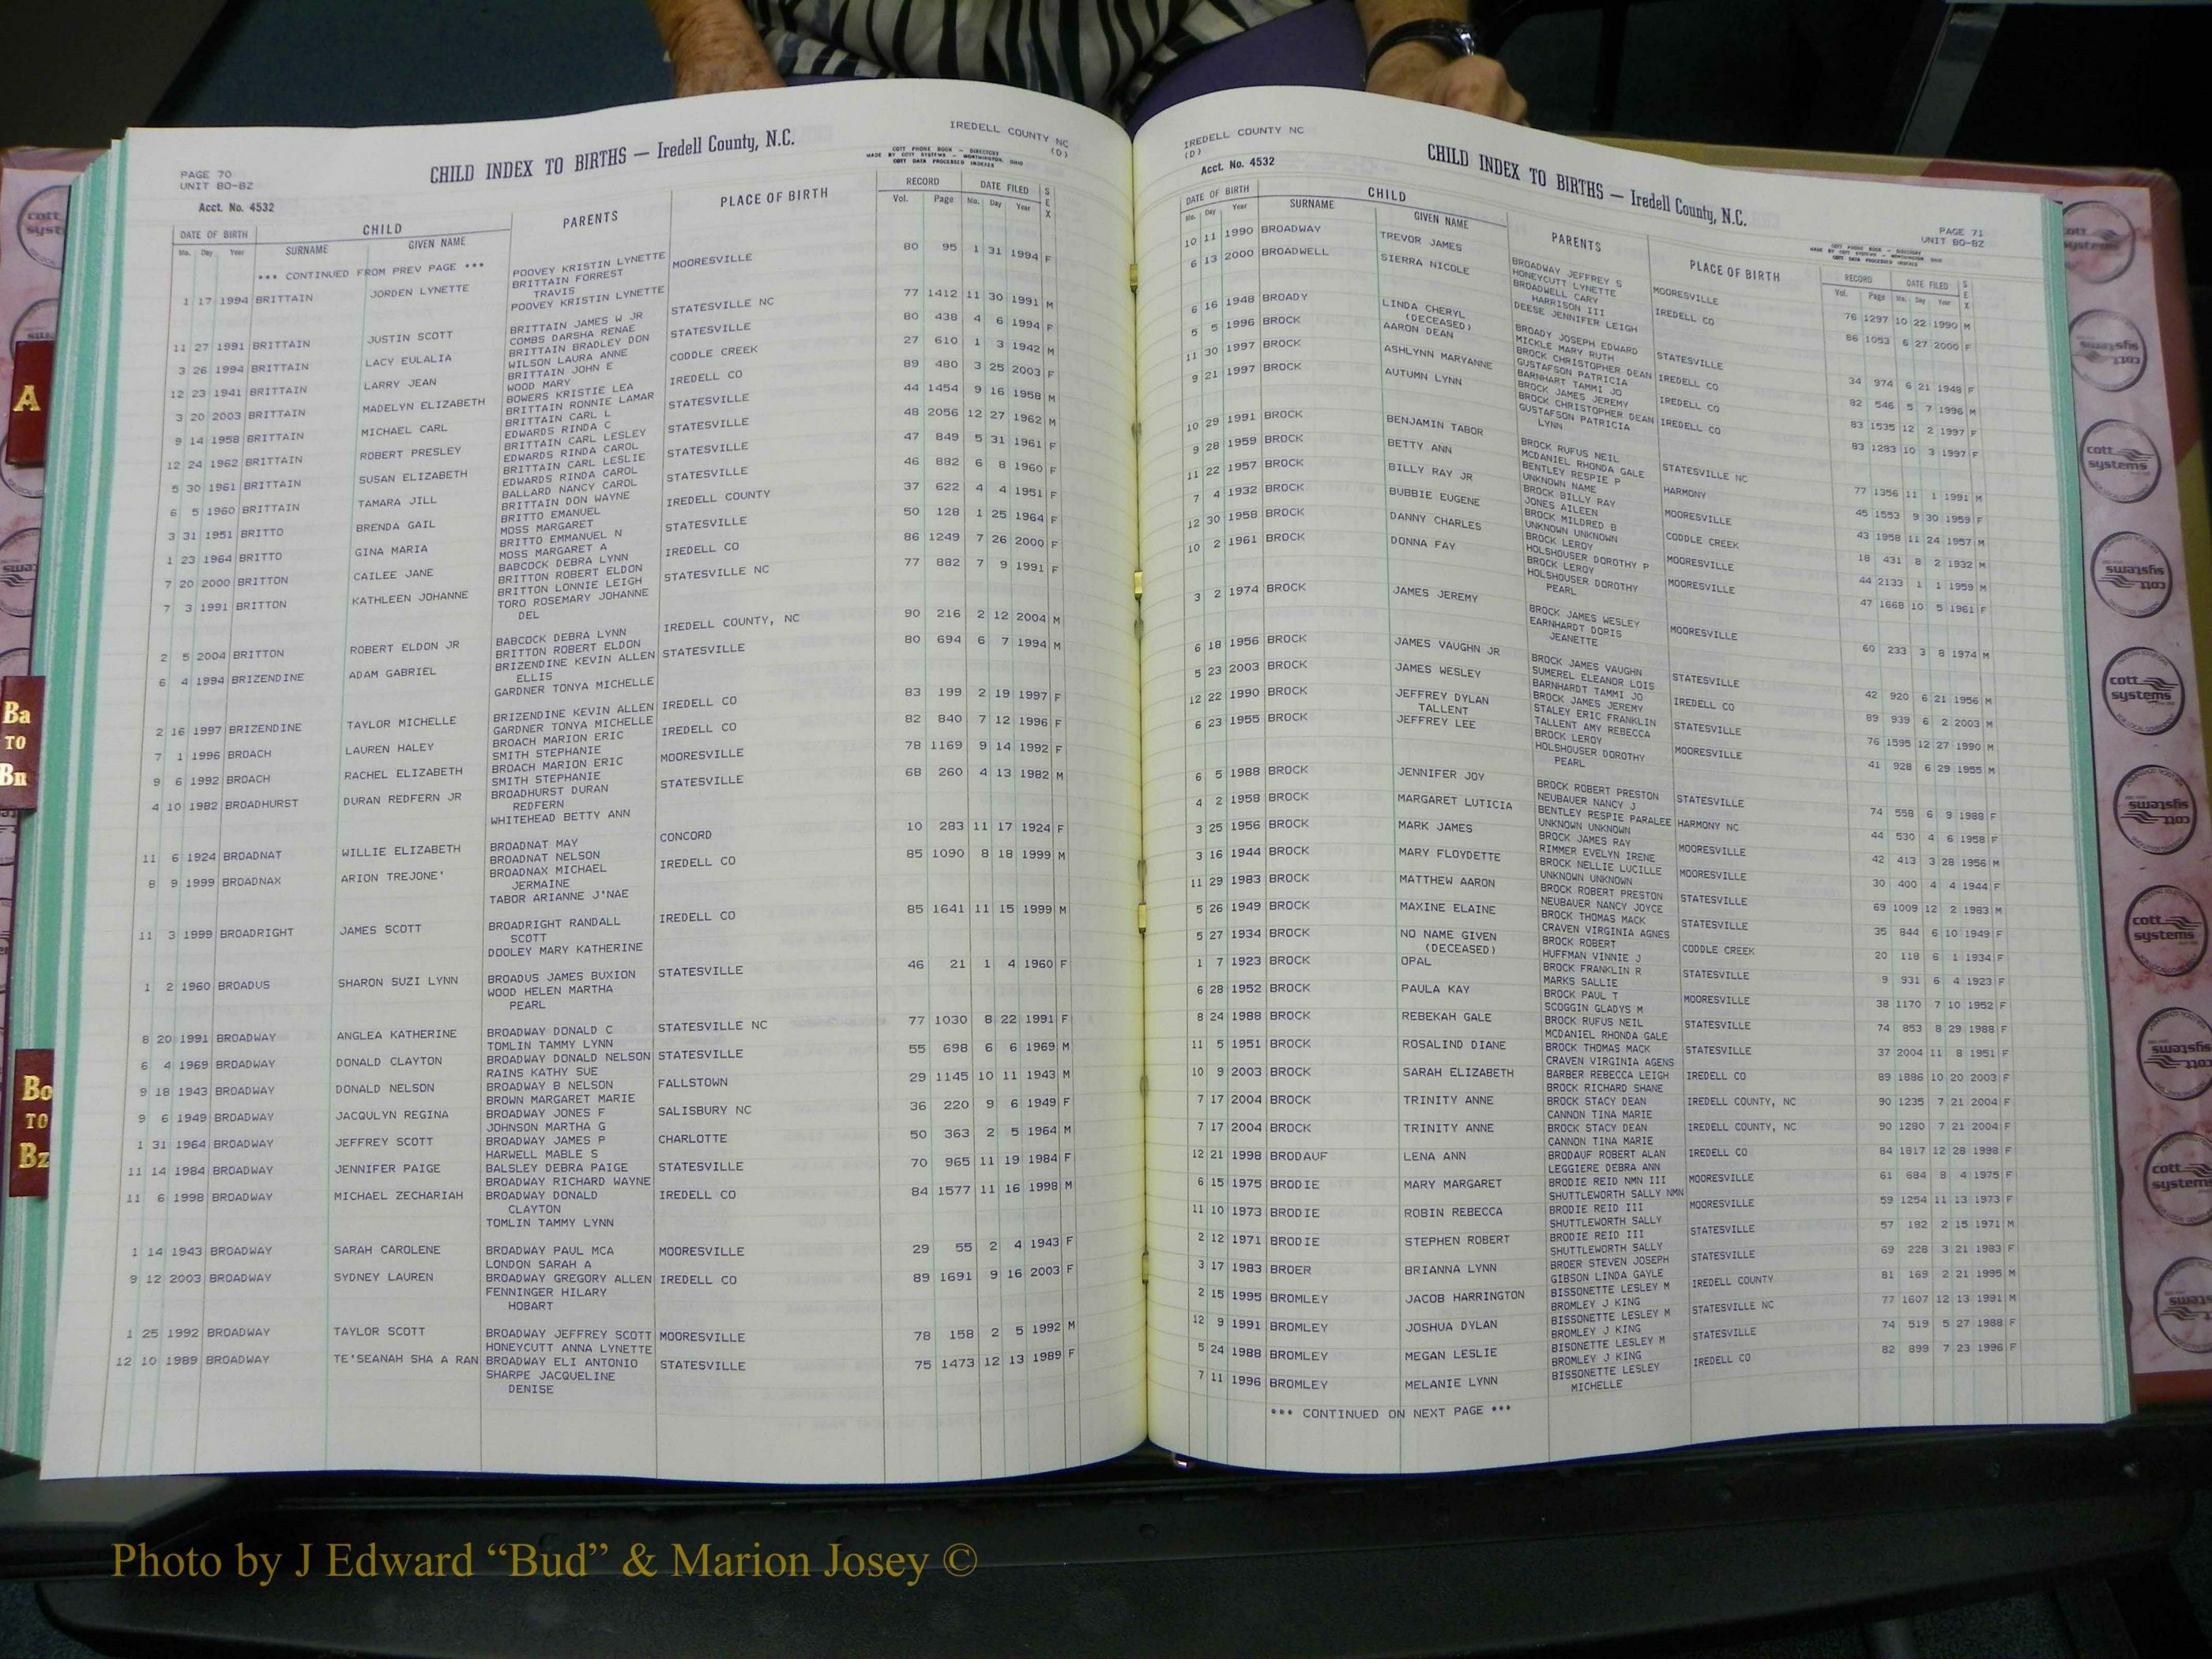 IREDELL COUNTY NC
(D)
CHILD INDEX TO BIRTHS — Iredell County, N.C.
COTT PHONE BOOK — DIRECTORY
MADE BY COTT SYSTEMS — WORTHINGTON, OHIO
COTT DATA PROCESSED INDEXES
PAGE 70
UNIT BO-BZ
Acct. No. 4532
DATE OF BIRTH CHILD PARENTS PLACE OF BIRTH RECORD DATE FILED SEX
Mo. Day Year SURNAME GIVEN NAME Vol. Page Mo. Day Year
*** CONTINUED FROM PREV PAGE ***
POOVEY KRISTIN LYNETTE
1 17 1994 BRITTAIN JORDEN LYNETTE BRITTAIN FORREST MOORESVILLE 80 95 1 31 1994 F
TRAVIS
POOVEY KRISTIN LYNETTE
11 27 1991 BRITTAIN JUSTIN SCOTT BRITTAIN JAMES W JR STATESVILLE NC 77 1412 11 30 1991 M
COMBS DARSHA RENAE
3 26 1994 BRITTAIN LACY EULALIA BRITTAIN BRADLEY DON STATESVILLE 80 438 4 6 1994 F
WILSON LAURA ANNE
12 23 1941 BRITTAIN LARRY JEAN BRITTAIN JOHN E CODDLE CREEK 27 610 1 3 1942 M
WOOD MARY
3 20 2003 BRITTAIN MADELYN ELIZABETH BOWERS KRISTIE LEA IREDELL CO 89 480 3 25 2003 F
BRITTAIN RONNIE LAMAR
9 14 1958 BRITTAIN MICHAEL CARL BRITTAIN CARL L STATESVILLE 44 1454 9 16 1958 M
EDWARDS RINDA C
12 24 1962 BRITTAIN ROBERT PRESLEY BRITTAIN CARL LESLEY STATESVILLE 48 2056 12 27 1962 M
EDWARDS RINDA CAROL
5 30 1961 BRITTAIN SUSAN ELIZABETH BRITTAIN CARL LESLIE STATESVILLE 47 849 5 31 1961 F
EDWARDS RINDA CAROL
6 5 1960 BRITTAIN TAMARA JILL BALLARD NANCY CAROL STATESVILLE 46 882 6 8 1960 F
BRITTAIN DON WAYNE
3 31 1951 BRITTO BRENDA GAIL BRITTO EMANUEL IREDELL COUNTY 37 622 4 4 1951 F
MOSS MARGARET
1 23 1964 BRITTO GINA MARIA BRITTO EMMANUEL N STATESVILLE 50 128 1 25 1964 F
MOSS MARGARET A
7 20 2000 BRITTON CAILEE JANE BABCOCK DEBRA LYNN IREDELL CO 86 1249 7 26 2000 F
BRITTON ROBERT ELDON
7 3 1991 BRITTON KATHLEEN JOHANNE BRITTON LONNIE LEIGH STATESVILLE NC 77 882 7 9 1991 F
TORO ROSEMARY JOHANNE
DEL
2 5 2004 BRITTON ROBERT ELDON JR BABCOCK DEBRA LYNN IREDELL COUNTY, NC 90 216 2 12 2004 M
BRITTON ROBERT ELDON
6 4 1994 BRIZENDINE ADAM GABRIEL BRIZENDINE KEVIN ALLEN STATESVILLE 80 694 6 7 1994 M
ELLIS
GARDNER TONYA MICHELLE
2 16 1997 BRIZENDINE TAYLOR MICHELLE BRIZENDINE KEVIN ALLEN IREDELL CO 83 199 2 19 1997 F
GARDNER TONYA MICHELLE
7 1 1996 BROACH LAUREN HALEY BROACH MARION ERIC IREDELL CO 82 840 7 12 1996 F
SMITH STEPHANIE
9 6 1992 BROACH RACHEL ELIZABETH BROACH MARION ERIC MOORESVILLE 78 1169 9 14 1992 F
SMITH STEPHANIE
4 10 1982 BROADHURST DURAN REDFERN JR BROADHURST DURAN STATESVILLE 68 260 4 13 1982 M
REDFERN
WHITEHEAD BETTY ANN
11 6 1924 BROADNAT WILLIE ELIZABETH BROADNAT MAY CONCORD 10 283 11 17 1924 F
BROADNAT NELSON
8 9 1999 BROADNAX ARION TREJONE' BROADNAX MICHAEL IREDELL CO 85 1090 8 18 1999 M
JERMAINE
TABOR ARIANNE J'NAE
11 3 1999 BROADRIGHT JAMES SCOTT BROADRIGHT RANDALL IREDELL CO 85 1641 11 15 1999 M
SCOTT
DOOLEY MARY KATHERINE
1 2 1960 BROADUS SHARON SUZI LYNN BROADUS JAMES BUXION STATESVILLE 46 21 1 4 1960 F
WOOD HELEN MARTHA
PEARL
8 20 1991 BROADWAY ANGLEA KATHERINE BROADWAY DONALD C STATESVILLE NC 77 1030 8 22 1991 F
TOMLIN TAMMY LYNN
6 4 1969 BROADWAY DONALD CLAYTON BROADWAY DONALD NELSON STATESVILLE 55 698 6 6 1969 M
RAINS KATHY SUE
9 18 1943 BROADWAY DONALD NELSON BROADWAY B NELSON FALLSTOWN 29 1145 10 11 1943 M
BROWN MARGARET MARIE
9 6 1949 BROADWAY JACQULYN REGINA BROADWAY JONES F SALISBURY NC 36 220 9 6 1949 F
JOHNSON MARTHA G
1 31 1964 BROADWAY JEFFREY SCOTT BROADWAY JAMES P CHARLOTTE 50 363 2 5 1964 M
HARWELL MABLE S
11 14 1984 BROADWAY JENNIFER PAIGE BALSLEY DEBRA PAIGE STATESVILLE 70 965 11 19 1984 F
BROADWAY RICHARD WAYNE
11 6 1998 BROADWAY MICHAEL ZECHARIAH BROADWAY DONALD IREDELL CO 84 1577 11 16 1998 M
CLAYTON
TOMLIN TAMMY LYNN
1 14 1943 BROADWAY SARAH CAROLENE BROADWAY PAUL MCA MOORESVILLE 29 55 2 4 1943 F
LONDON SARAH A
9 12 2003 BROADWAY SYDNEY LAUREN BROADWAY GREGORY ALLEN IREDELL CO 89 1691 9 16 2003 F
FENNINGER HILARY
HOBART
1 25 1992 BROADWAY TAYLOR SCOTT BROADWAY JEFFREY SCOTT MOORESVILLE 78 158 2 5 1992 M
HONEYCUTT ANNA LYNETTE
12 10 1989 BROADWAY TE'SEANAH SHA A RAN BROADWAY ELI ANTONIO STATESVILLE 75 1473 12 13 1989 F
SHARPE JACQUELINE
DENISE
IREDELL COUNTY NC
(D)
Acct. No. 4532
CHILD INDEX TO BIRTHS — Iredell County, N.C.
PAGE 71
UNIT BO-BZ
COTT PHONE BOOK — DIRECTORY
MADE BY COTT SYSTEMS — WORTHINGTON, OHIO
COTT DATA PROCESSED INDEXES
DATE OF BIRTH CHILD PARENTS PLACE OF BIRTH RECORD DATE FILED SEX
Mo. Day Year SURNAME GIVEN NAME Vol. Page Mo. Day Year
10 11 1990 BROADWAY TREVOR JAMES BROADWAY JEFFREY S MOORESVILLE 76 1297 10 22 1990 M
HONEYCUTT LYNETTE
6 13 2000 BROADWELL SIERRA NICOLE BROADWELL CARY IREDELL CO 86 1053 6 27 2000 F
HARRISON III
DEESE JENNIFER LEIGH
6 16 1948 BROADY LINDA CHERYL BROADY JOSEPH EDWARD STATESVILLE 34 974 6 21 1948 F
(DECEASED) MICKLE MARY RUTH
5 5 1996 BROCK AARON DEAN BROCK CHRISTOPHER DEAN IREDELL CO 82 546 5 7 1996 M
GUSTAFSON PATRICIA
11 30 1997 BROCK ASHLYNN MARYANNE BARNHART TAMMI JO IREDELL CO 83 1535 12 2 1997 F
BROCK JAMES JEREMY
9 21 1997 BROCK AUTUMN LYNN BROCK CHRISTOPHER DEAN IREDELL CO 83 1283 10 3 1997 F
GUSTAFSON PATRICIA
LYNN
10 29 1991 BROCK BENJAMIN TABOR BROCK RUFUS NEIL STATESVILLE NC 77 1356 11 1 1991 M
MCDANIEL RHONDA GALE
9 28 1959 BROCK BETTY ANN BENTLEY RESPIE P HARMONY 45 1553 9 30 1959 F
UNKNOWN NAME
11 22 1957 BROCK BILLY RAY JR BROCK BILLY RAY MOORESVILLE 43 1958 11 24 1957 M
JONES AILEEN
7 4 1932 BROCK BUBBIE EUGENE BROCK MILDRED B CODDLE CREEK 18 431 8 2 1932 M
UNKNOWN UNKNOWN
12 30 1958 BROCK DANNY CHARLES BROCK LEROY MOORESVILLE 44 2133 1 1 1959 M
HOLSHOUSER DOROTHY P
10 2 1961 BROCK DONNA FAY BROCK LEROY MOORESVILLE 47 1668 10 5 1961 F
HOLSHOUSER DOROTHY
PEARL
3 2 1974 BROCK JAMES JEREMY BROCK JAMES WESLEY MOORESVILLE 60 233 3 8 1974 M
EARNHARDT DORIS
JEANETTE
6 18 1956 BROCK JAMES VAUGHN JR BROCK JAMES VAUGHN STATESVILLE 42 920 6 21 1956 M
SUMEREL ELEANOR LOIS
5 23 2003 BROCK JAMES WESLEY BARNHARDT TAMMI JO IREDELL CO 89 939 6 2 2003 M
BROCK JAMES JEREMY
12 22 1990 BROCK JEFFREY DYLAN STALEY ERIC FRANKLIN STATESVILLE 76 1595 12 27 1990 M
TALLENT TALLENT AMY REBECCA
6 23 1955 BROCK JEFFREY LEE BROCK LEROY MOORESVILLE 41 928 6 29 1955 M
HOLSHOUSER DOROTHY
PEARL
6 5 1988 BROCK JENNIFER JOY BROCK ROBERT PRESTON STATESVILLE 74 558 6 9 1988 F
NEUBAUER NANCY J
4 2 1958 BROCK MARGARET LUTICIA BENTLEY RESPIE PARALEE HARMONY NC 44 530 4 6 1958 F
UNKNOWN UNKNOWN
3 25 1956 BROCK MARK JAMES BROCK JAMES RAY MOORESVILLE 42 413 3 28 1956 M
RIMMER EVELYN IRENE
3 16 1944 BROCK MARY FLOYDETTE BROCK NELLIE LUCILLE MOORESVILLE 30 400 4 4 1944 F
UNKNOWN UNKNOWN
11 29 1983 BROCK MATTHEW AARON BROCK ROBERT PRESTON STATESVILLE 69 1009 12 2 1983 M
NEUBAUER NANCY JOYCE
5 26 1949 BROCK MAXINE ELAINE BROCK THOMAS MACK STATESVILLE 35 844 6 10 1949 F
CRAVEN VIRGINIA AGNES
5 27 1934 BROCK NO NAME GIVEN BROCK ROBERT CODDLE CREEK 20 118 6 1 1934 F
(DECEASED) HUFFMAN VINNIE J
1 7 1923 BROCK OPAL BROCK FRANKLIN R STATESVILLE 9 931 6 4 1923 F
MARKS SALLIE
6 28 1952 BROCK PAULA KAY BROCK PAUL T MOORESVILLE 38 1170 7 10 1952 F
SCOGGIN GLADYS M
8 24 1988 BROCK REBEKAH GALE BROCK RUFUS NEIL STATESVILLE 74 853 8 29 1988 F
MCDANIEL RHONDA GALE
11 5 1951 BROCK ROSALIND DIANE BROCK THOMAS MACK STATESVILLE 37 2004 11 8 1951 F
CRAVEN VIRGINIA AGENS
10 9 2003 BROCK SARAH ELIZABETH BARBER REBECCA LEIGH IREDELL CO 89 1886 10 20 2003 F
BROCK RICHARD SHANE
7 17 2004 BROCK TRINITY ANNE BROCK STACY DEAN IREDELL COUNTY, NC 90 1235 7 21 2004 F
CANNON TINA MARIE
7 17 2004 BROCK TRINITY ANNE BROCK STACY DEAN IREDELL COUNTY, NC 90 1280 7 21 2004 F
CANNON TINA MARIE
12 21 1998 BRODAUF LENA ANN BRODAUF ROBERT ALAN IREDELL CO 84 1817 12 28 1998 F
LEGGIERE DEBRA ANN
6 15 1975 BRODIE MARY MARGARET BRODIE REID NMN III MOORESVILLE 61 684 8 4 1975 F
SHUTTLEWORTH SALLY NMN
11 10 1973 BRODIE ROBIN REBECCA BRODIE REID III MOORESVILLE 59 1254 11 13 1973 F
SHUTTLEWORTH SALLY
2 12 1971 BRODIE STEPHEN ROBERT BRODIE REID III STATESVILLE 57 182 2 15 1971 M
SHUTTLEWORTH SALLY
3 17 1983 BROER BRIANNA LYNN BROER STEVEN JOSEPH STATESVILLE 69 228 3 21 1983 F
GIBSON LINDA GAYLE
2 15 1995 BROMLEY JACOB HARRINGTON BISSONETTE LESLEY M IREDELL COUNTY 81 169 2 21 1995 M
BROMLEY J KING
12 9 1991 BROMLEY JOSHUA DYLAN BISSONETTE LESLEY M STATESVILLE NC 77 1607 12 13 1991 M
BROMLEY J KING
5 24 1988 BROMLEY MEGAN LESLIE BISONETTE LESLEY M STATESVILLE 74 519 5 27 1988 F
BROMLEY J KING
7 11 1996 BROMLEY MELANIE LYNN BISSONETTE LESLEY IREDELL CO 82 899 7 23 1996 F
MICHELLE
*** CONTINUED ON NEXT PAGE ***
A
Ba
TO
Bn
Bo
TO
Bz
cott
systems
Photo by J Edward “Bud” & Marion Josey ©